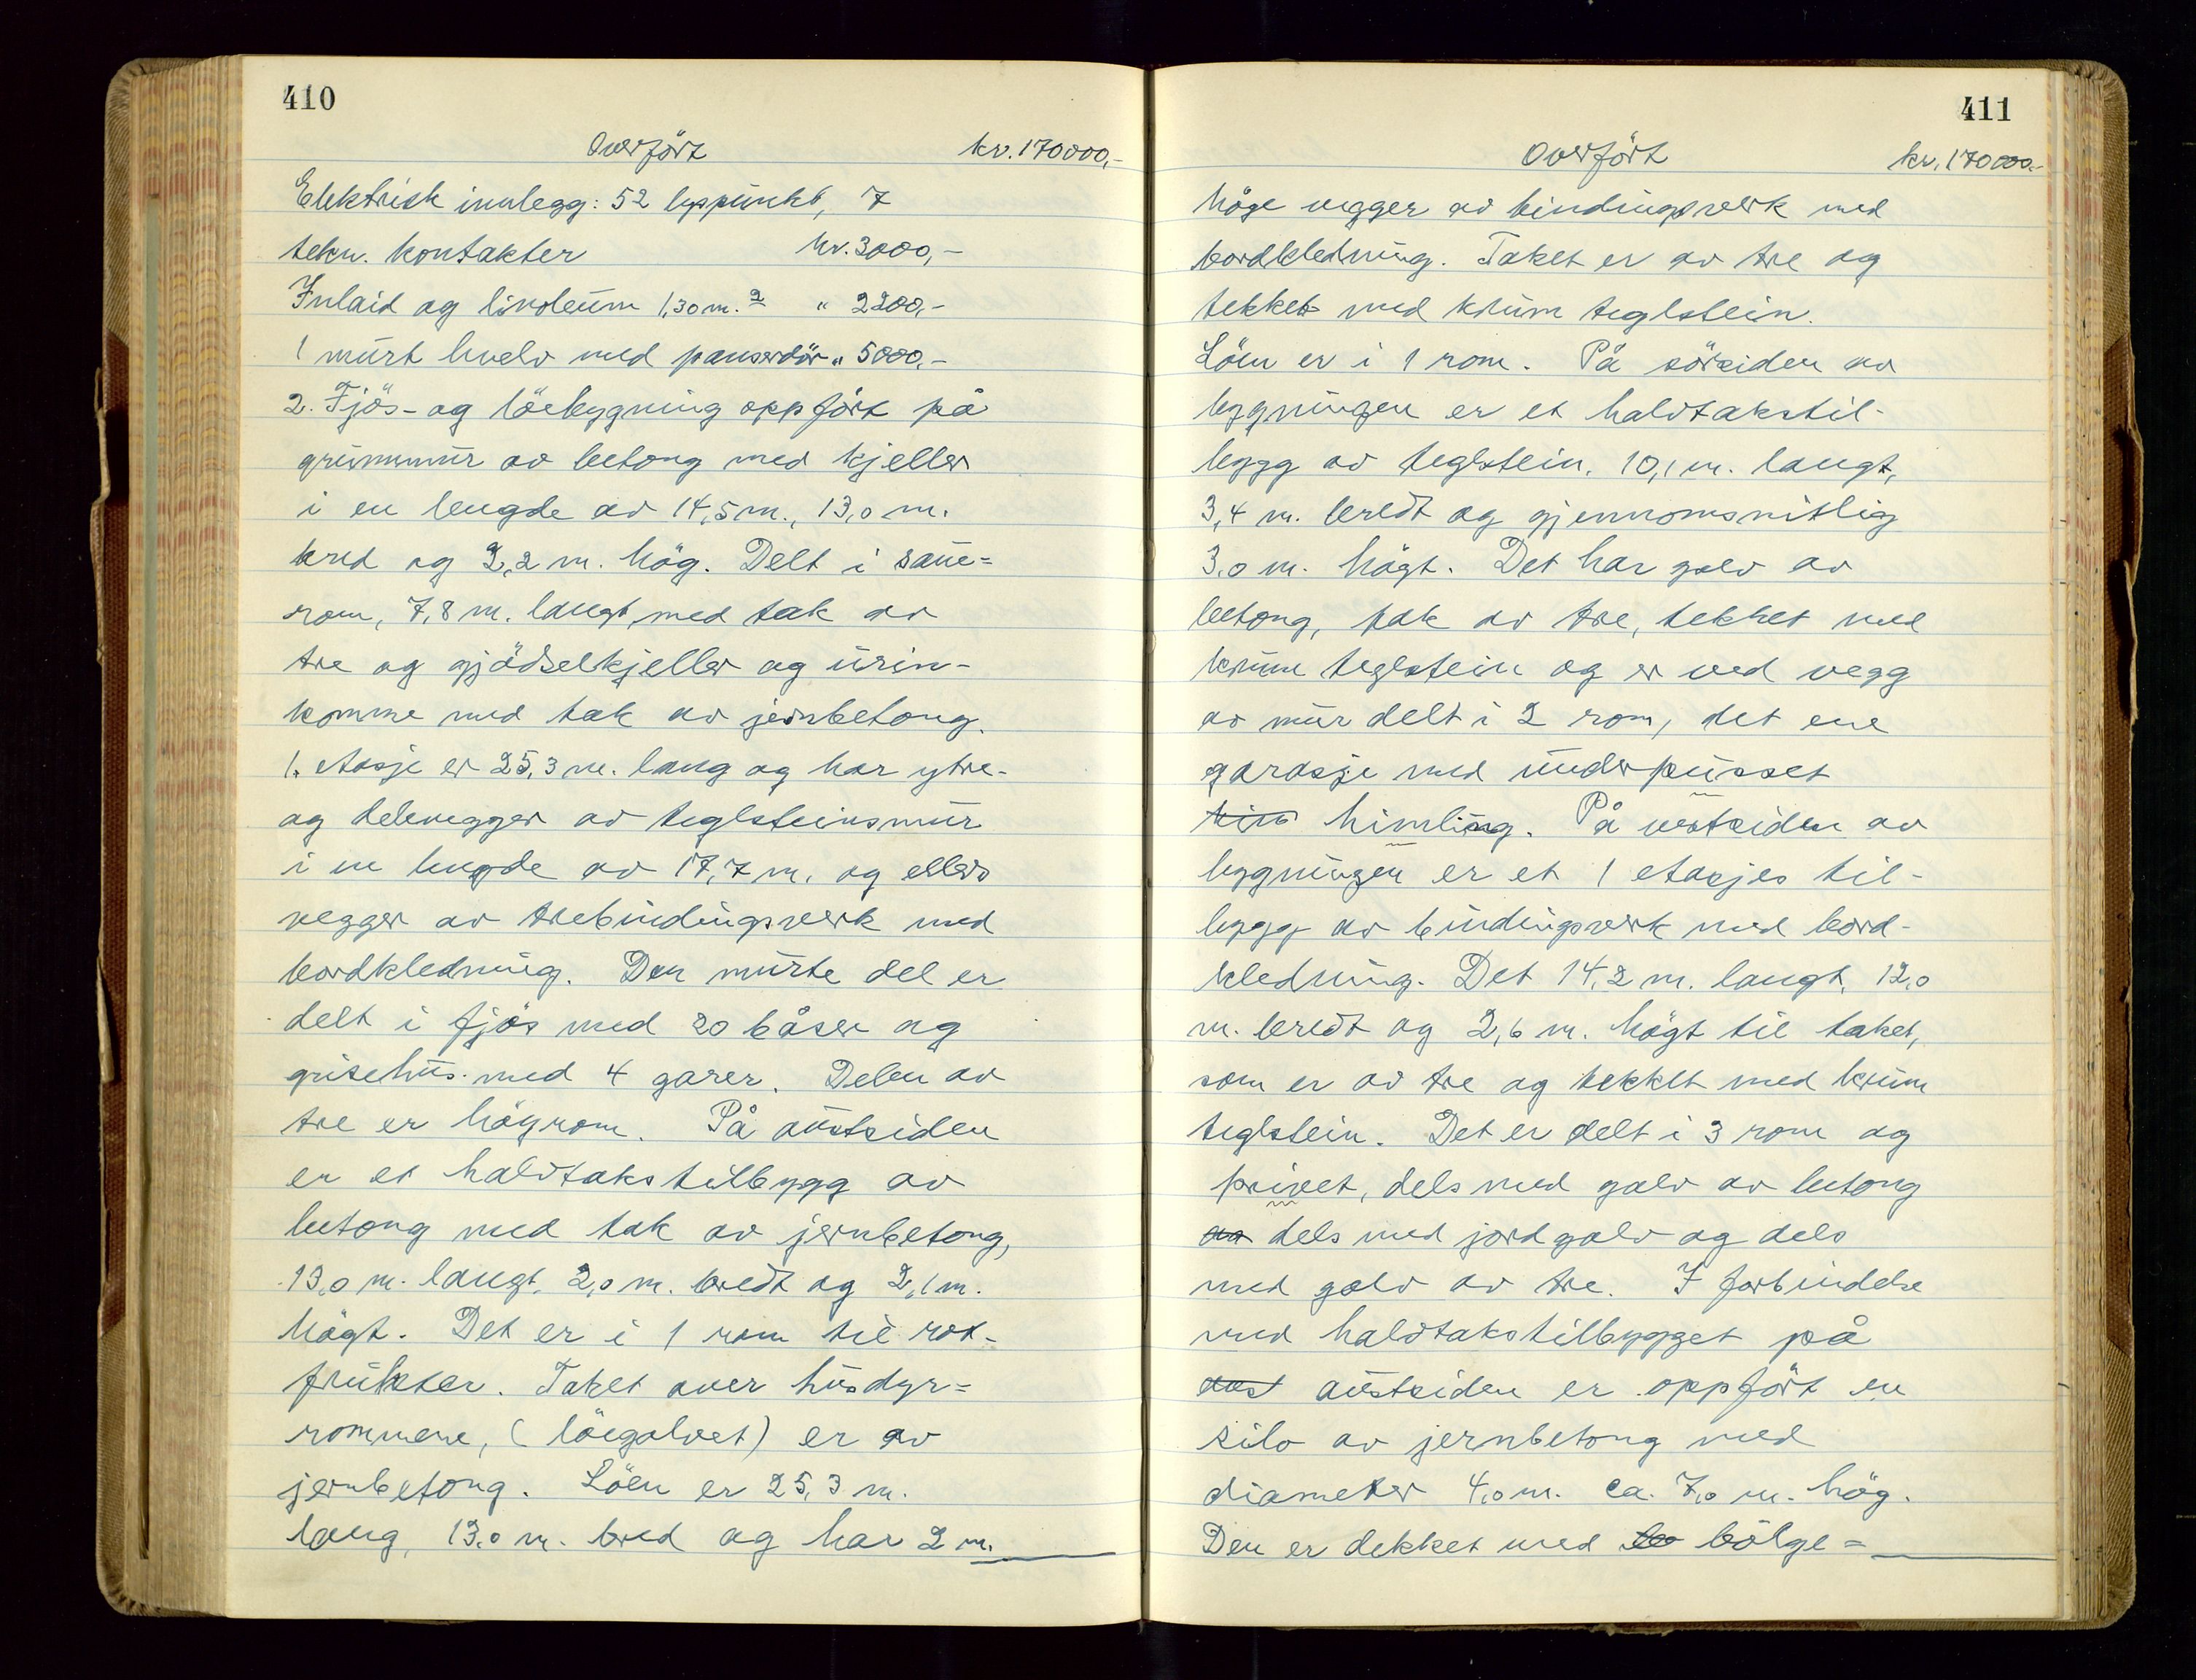 410
Overfört kr. 170000,-
Elektrisk innlegg: 52 lyspunkt, 7
tekn. kontakter kr. 3000,-
Inlaid og linoleum 130 m.2 " 2200,-
1 murt hvelv med panserdör " 5000,-
2. Fjös- og löebygning oppfört på
grunnmur av betong med kjeller
i en lengde av 14,5 m., 13,0 m.
bred og 2,2 m. hög. Delt i saue=
rom, 7,8 m. langt med tak av
tre og gjödselkjeller og urin-
komme med tak av jernbetong.
1. etasje er 25,3 m. lang og har ytre-
og delevegger av teglsteinsmur
i en lengde av 17,7 m. og ellers
vegger av trebindingsverk med
bordkledning. Den murte del er
delt i fjös med 20 båser og
grisehus med 4 garer. Delen av
tre er högrom. På austsiden
er et halvtakstilbygg av
betong med tak av jernbetong,
13,0 m. langt, 2,0 m. bredt og 2,1 m.
högt. Det er i 1 rom til rot-
frukter. Taket over husdyr=
rommene, (löegolvet) er av
jernbetong. Löen er 25,3 m.
lang, 13,0 m. bred og har 2 m.
411
Overfört kr. 170000.-
höge vegger av bindingsverk med
bordkledning. Taket er av tre og
tekket med krum teglstein.
Löen er i 1 rom. På sörsiden av
bygningen er et halvtakstil-
bygg av teglstein, 10,1 m. langt,
3,4 m. bredt og gjennomsnitlig
3,0 m. högt. Det har golv av
betong, tak av tre, tekket med
krum teglstein og er ved vegg
av mur delt i 2 rom, det ene
garasje med underpusset
himling. På vestsiden av
bygningen er et 1 etasjes til-
bygg av bindingsverk med bord-
kledning. Det 14,2 m. langt, 12,0
m. bredt og 2,6 m. högt til taket,
som er av tre og tekket med krum
teglstein. Det er delt i 3 rom og
privet, dels med golv av betong
av dels med jordgolv og dels
med golv av tre. I forbindelse
med halvtakstilbygget på
aust austsiden er oppfört en
silo av jernbetong med
diameter 4,0 m. ca. 7,0 m. hög.
Den er dekket med bölge=